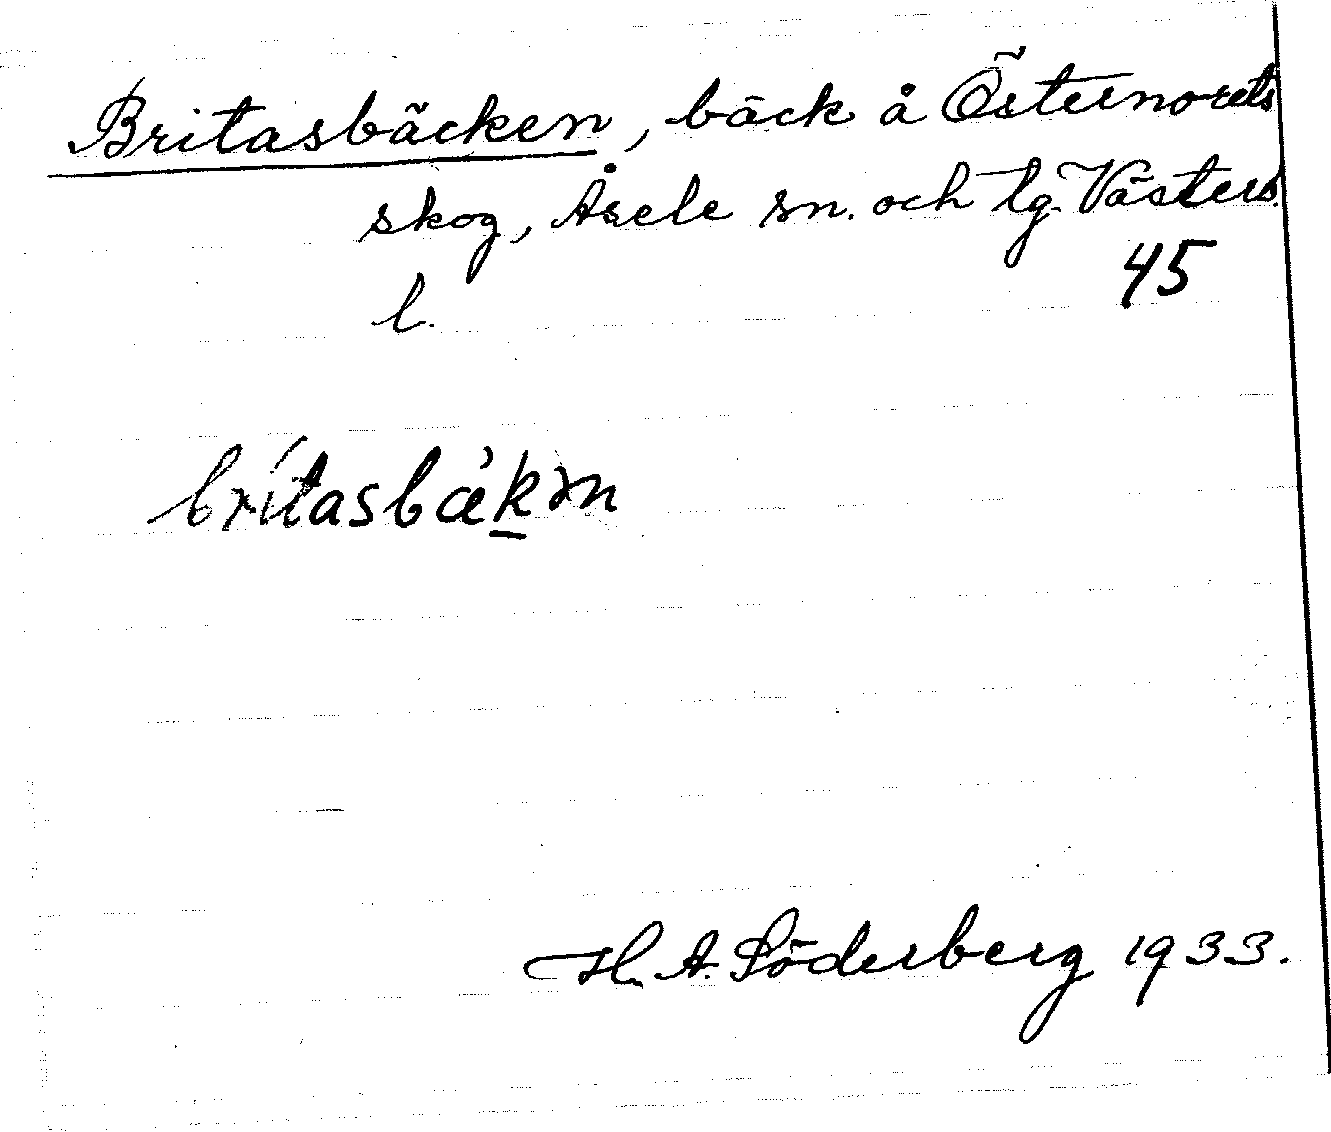 Britasbäcken, bäck å Östernorets
skog, Åsele sn. och lg. Västerb.
l.
45
britasbäkən
H. A. Söderberg 1933.